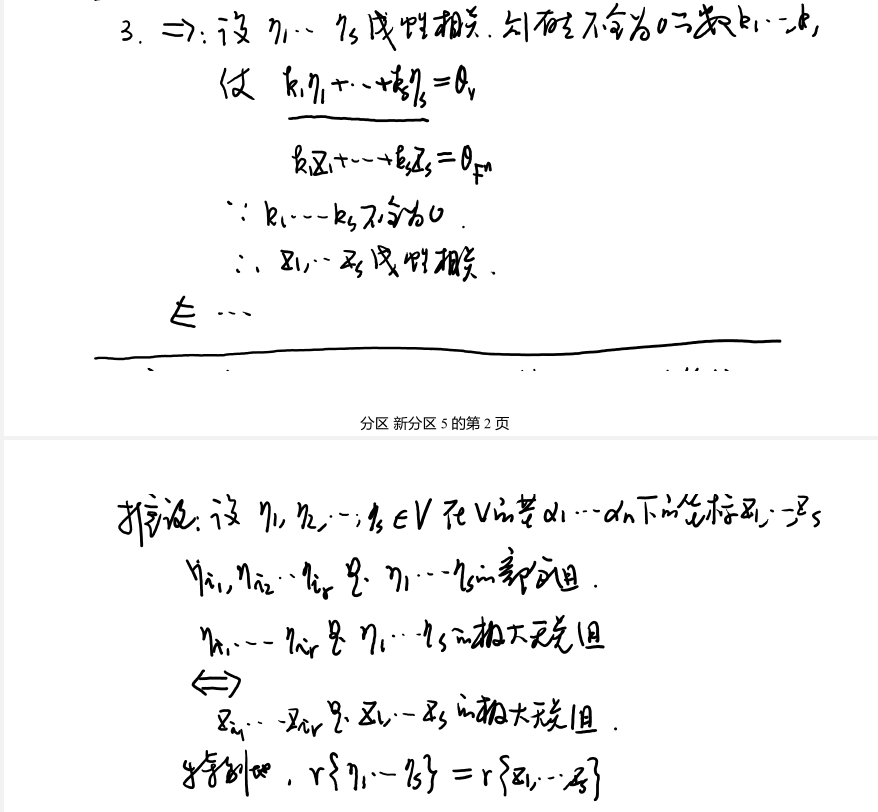 3. ⇒: 设 η₁⋯ηₛ 线性相关. 则存在不全为0的数k₁⋯,kₛ
使 k₁η₁+⋯+kₛηₛ=θᵥ
k₁Z₁+⋯+kₛZₛ=θ_Fⁿ
∵ k₁⋯kₛ不全为0.
∴ Z₁,⋯Zₛ线性相关.
⇐ ⋯
分区 新分区 5 的第 2 页
推论: 设 η₁, η₂,⋯, ηₛ∈V 在V的基α₁⋯αₙ下的坐标Z₁,⋯,Zₛ
ηᵢ₁,ηᵢ₂⋯ηᵢᵣ 是 η₁⋯ηₛ的部分组.
ηᵢ₁⋯ηᵢᵣ 是 η₁⋯ηₛ的极大无关组
⇔
Zᵢ₁⋯Zᵢᵣ是 Z₁,⋯Zₛ 的极大无关组.
特别地, r{η₁⋯ηₛ} = r{Z₁,⋯Zₛ}